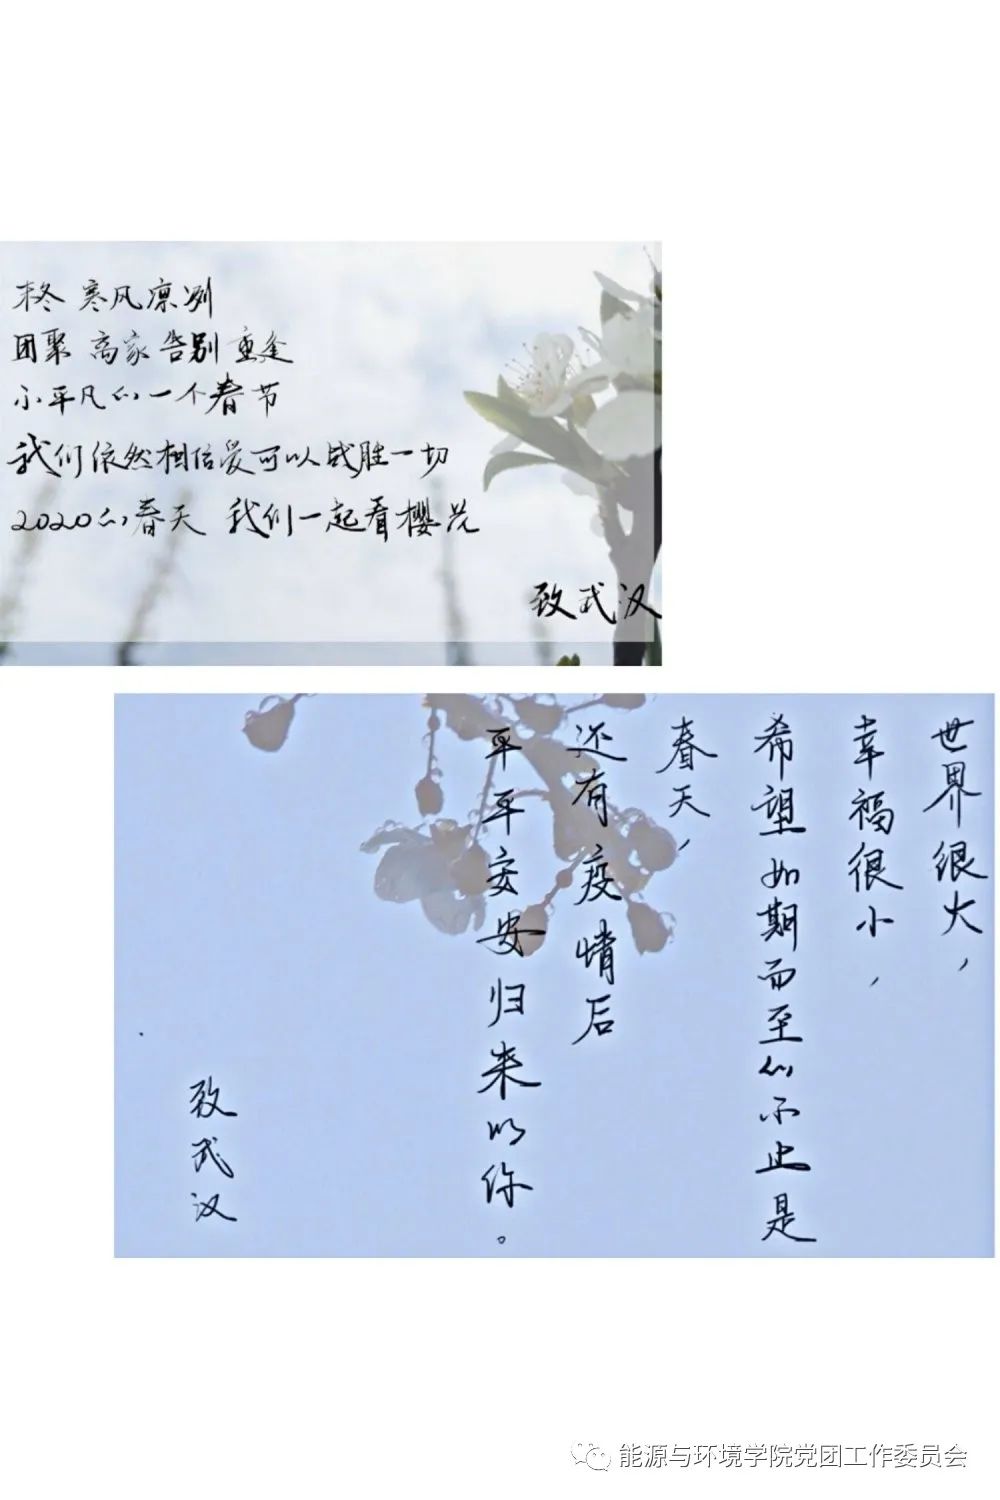 末冬 寒风凛冽
团聚 离家 告别 重逢
不平凡的一个春节
我们依然相信爱可以战胜一切
2020的春天 我们一起看樱花
致武汉
世界很大，
幸福很小，
希望如期而至的不止是
春天，
还有疫情后
平平安安归来的你。
致武汉
能源与环境学院党团工作委员会